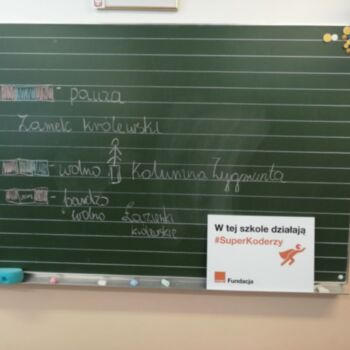 - pauza
Zamek królewski
- wolno Kolumna Zygmunta
- bardzo
wolno Łazienki
królewskie
W tej szkole działają
#SuperKoderzy
Fundacja